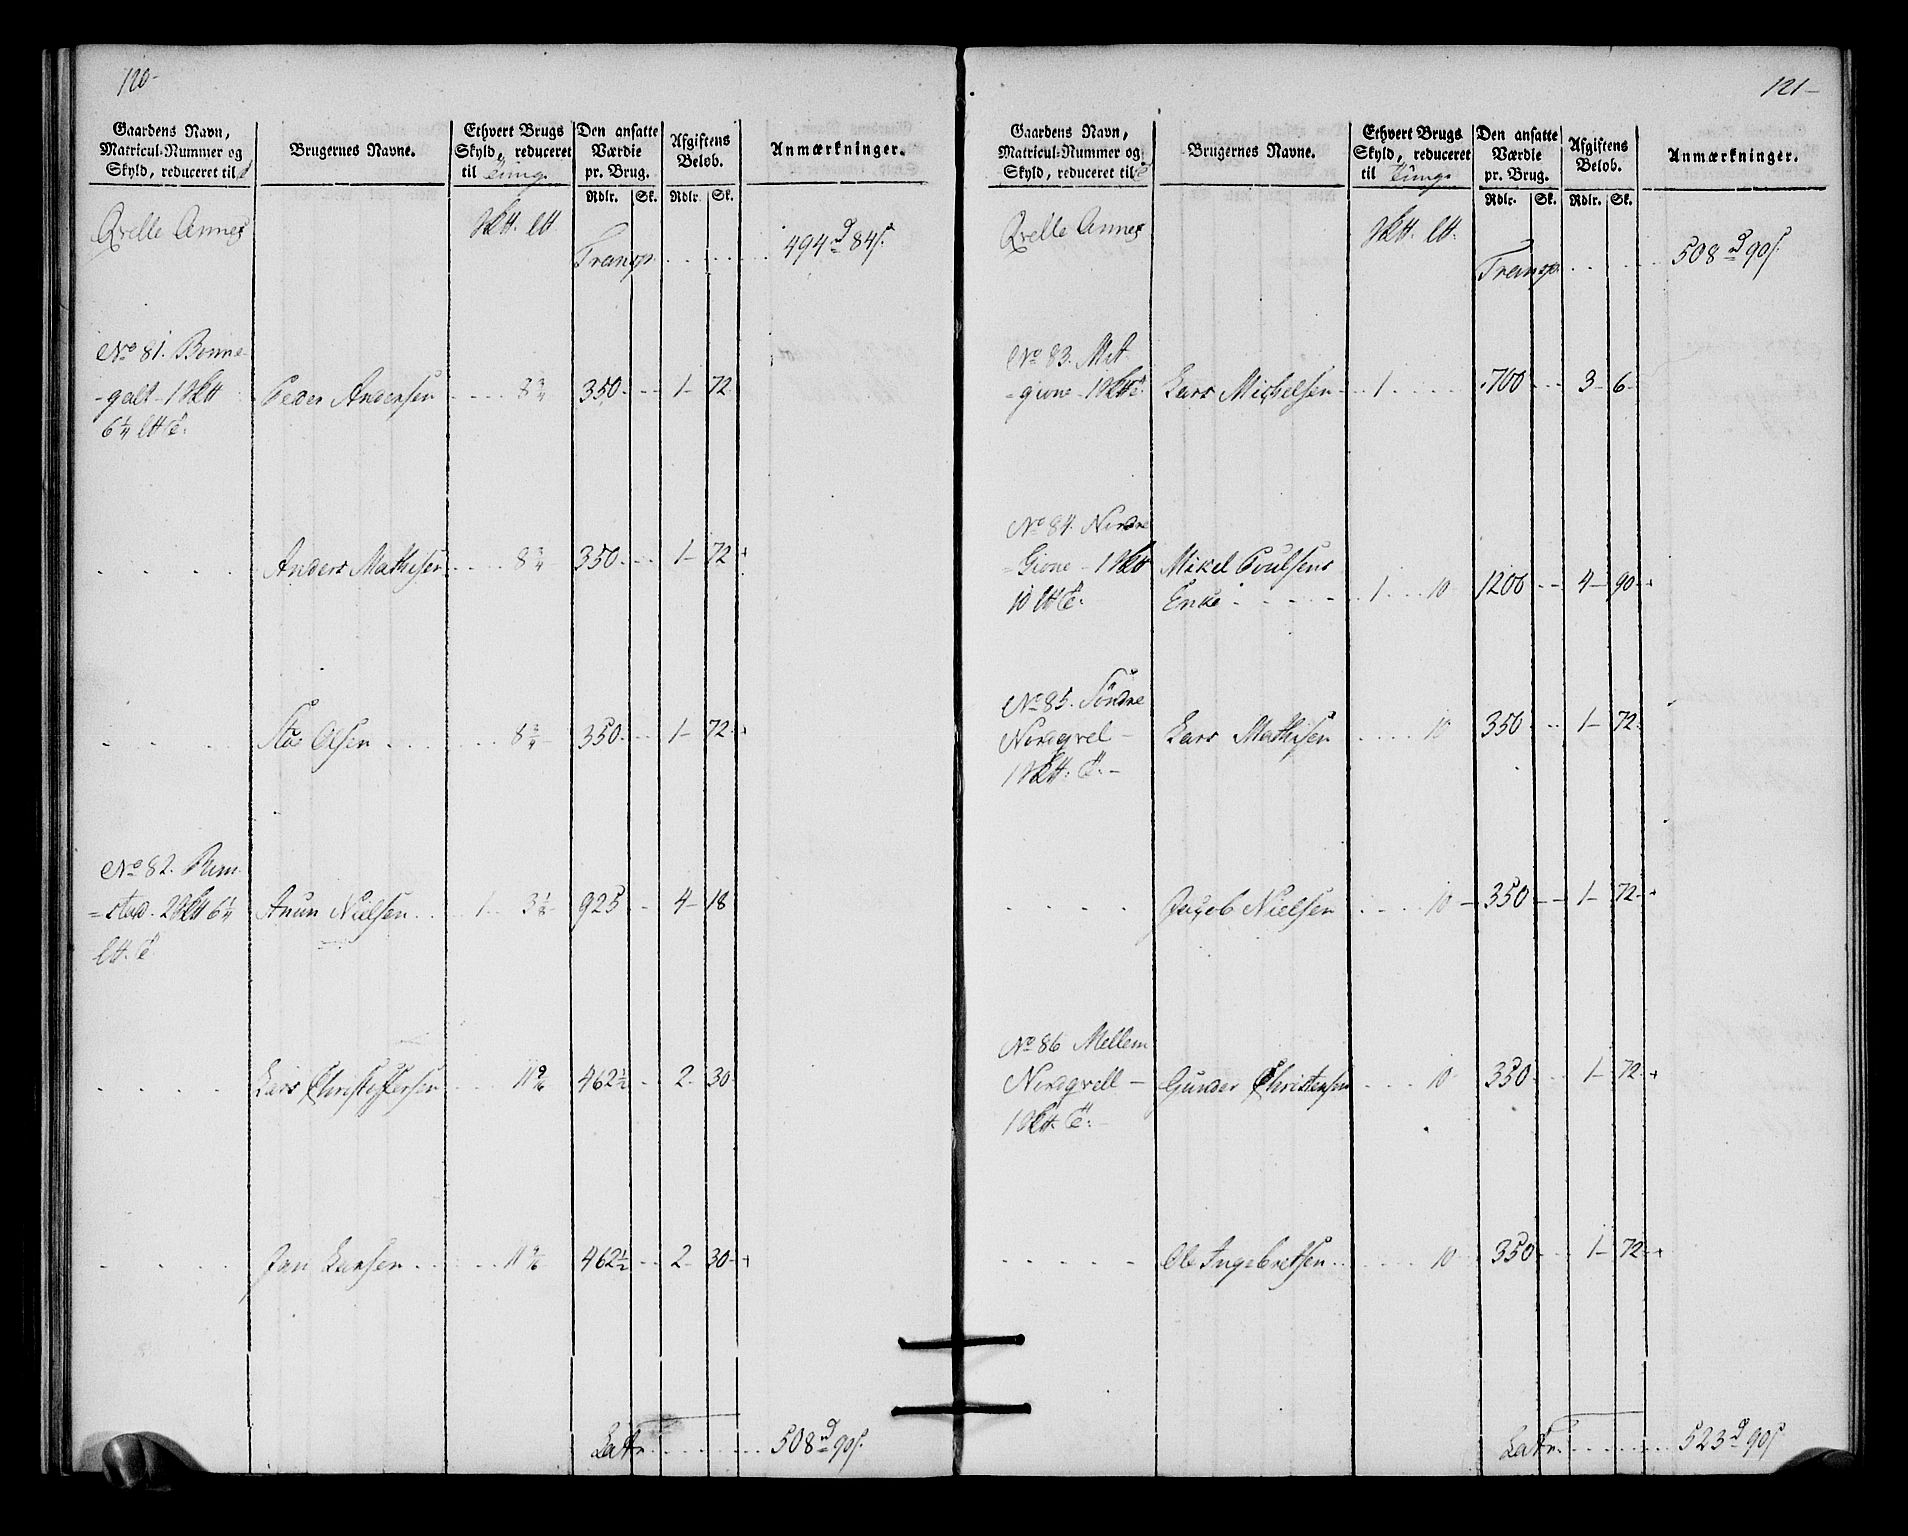 120-
Gaardens Navn,
Matricul-Nummer og
Skyld, reduceret til
Brugernes Navne.
Ethvert Brugs
Skyld, reduceret
til Tunge
Den ansatte
Værdie
pr. Brug.
Rdlr. Sk.
Afgiftens
Belob.
Rdlr. Sk.
Anmærkninger.
Qvelle Annex
Transp. 494 84
No 81. Bonne
Peder Andersen 8 3/4 350 1 72
Anders Mathisen 8 3/4 350 1 72
Olsen 8 3/4 350 1 72
No 82. Rem
=stad. 2 6 1/4 Anun Nielsen 1 3 1/8 925 4 18
Lars Christoffersen 11 9/16 462 1/2 2 30
Jan Larsen 11 9/16 462 1/2 2 30
Latr. 508 90
121-
Gaardens Navn,
Matricul-Nummer og
Skyld, reduceret til
Brugernes Navne.
Ethvert Brugs
Skyld, reduceret
til Tunge
Den ansatte
Værdie
pr. Brug.
Rdlr. Sk.
Afgiftens
Belob.
Rdlr. Sk.
Anmærkninger.
Qvelle Annex
Transp. 508 90
No 83. Met
=gione 1 Lars Michelsen 1 700 3 6
No 84. Nordre
=Gione 1 Mikel Poulsens
10 Enke 1 10 1200 4 90
No 85. Söndre
Nordqvel Lars Mathisen 10 350 1 72
Jacob Nielsen 10 350 1 72
No 86 Mellem
Nordqvell Gunder Christensen 10 350 1 72
Ole Ingebretsen 10 350 1 72
Latr. 523 90